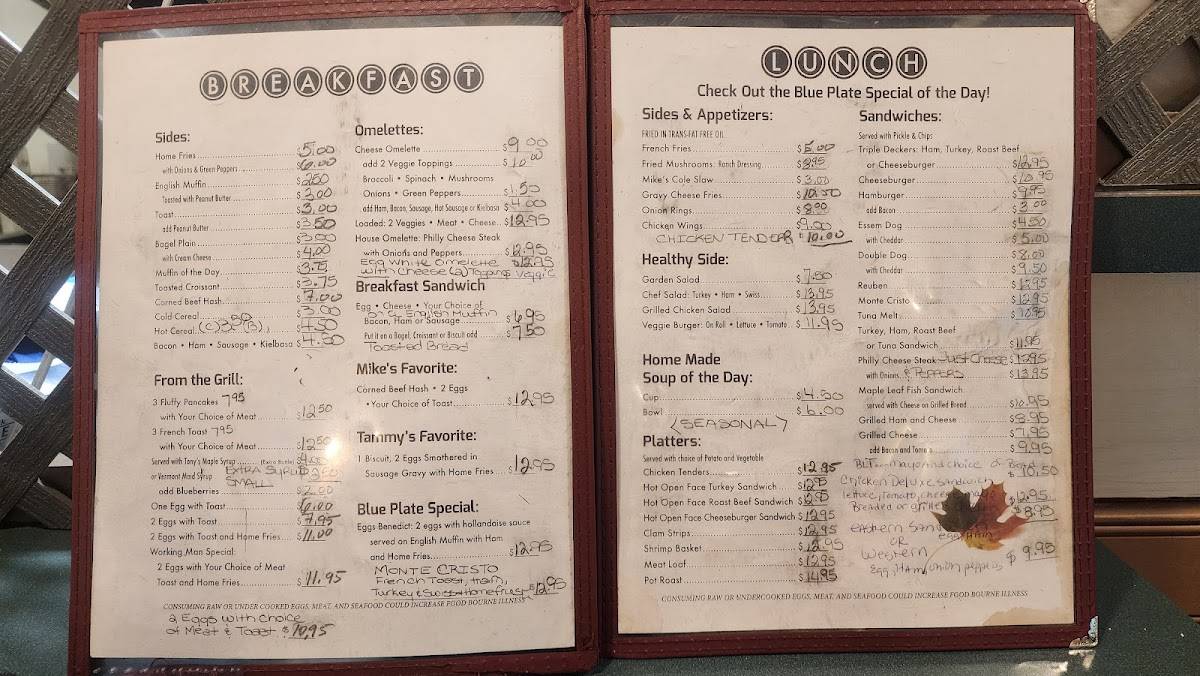 BREAKFAST
Sides:
Home Fries $5.00
with Onions & Green Peppers $6.00
English Muffin $2.50
Toasted with Peanut Butter $3.00
Toast $3.00
add Peanut Butter $3.50
Bagel Plain $3.00
with Cream Cheese $4.00
Muffin of the Day
Toasted Croissant $3.75
Corned Beef Hash $7.00
Cold Cereal $3.00
Hot Cereal $4.50
Bacon • Ham • Sausage • Kielbasa $4.50
From the Grill:
3 Fluffy Pancakes 7.95
with Your Choice of Meat $12.50
3 French Toast 7.95
with Your Choice of Meat $12.50
Served with Tony's Maple Syrup (Extra Bottle)
or Vermont Maid Syrup EXTRA SYRUP
SMALL
add Blueberries $2.00
One Egg with Toast $6.00
2 Eggs with Toast $7.95
2 Eggs with Toast and Home Fries $11.00
Working Man Special:
2 Eggs with Your Choice of Meat
Toast and Home Fries $11.95
Omelettes:
Cheese Omelette $9.00
add 2 Veggie Toppings $10.00
Broccoli • Spinach • Mushrooms
Onions • Green Peppers $1.50
add Ham, Bacon, Sausage, Hot Sausage or Kielbasa $4.00
Loaded: 2 Veggies • Meat • Cheese $12.95
House Omelette: Philly Cheese Steak
with Onions and Peppers $12.95
Egg White Omelette $12.95
with Cheese (2) Toppings Veggie
Breakfast Sandwich
Egg • Cheese • Your Choice of
on a English Muffin
Bacon, Ham or Sausage $6.95
Put it on a Bagel, Croissant or Biscuit add $7.50
Toasted Bread
Mike's Favorite:
Corned Beef Hash • 2 Eggs
• Your Choice of Toast $12.95
Tammy's Favorite:
1 Biscuit, 2 Eggs Smothered in
Sausage Gravy with Home Fries $12.95
Blue Plate Special:
Eggs Benedict: 2 eggs with hollandaise sauce
served on English Muffin with Ham
and Home Fries $12.95
MONTE CRISTO
French Toast, Ham,
Turkey & Swiss + Homefries $12.95
CONSUMING RAW OR UNDER COOKED EGGS, MEAT, AND SEAFOOD COULD INCREASE FOOD BOURNE ILLNESS
2 Eggs with Choice
of Meat & Toast $10.95
LUNCH
Check Out the Blue Plate Special of the Day!
Sides & Appetizers:
FRIED IN TRANS-FAT FREE OIL
French Fries $5.00
Fried Mushrooms: Ranch Dressing $8.95
Mike's Cole Slaw $3.00
Gravy Cheese Fries $10.50
Onion Rings $8.00
Chicken Wings $9.00
CHICKEN TENDERS $10.00
Healthy Side:
Garden Salad $7.50
Chef Salad: Turkey • Ham • Swiss $13.95
Grilled Chicken Salad $13.95
Veggie Burger: On Roll • Lettuce • Tomato $11.95
Home Made
Soup of the Day:
Cup $4.50
Bowl $6.00
(SEASONAL)
Platters:
Served with choice of Potato and Vegetable
Chicken Tenders $12.95
Hot Open Face Turkey Sandwich $12.95
Hot Open Face Roast Beef Sandwich $12.95
Hot Open Face Cheeseburger Sandwich $12.95
Clam Strips $12.95
Shrimp Basket $12.95
Meat Loaf $12.95
Pot Roast $14.95
Sandwiches:
Served with Pickle & Chips
Triple Deckers: Ham, Turkey, Roast Beef
or Cheeseburger $12.95
Cheeseburger $10.95
Hamburger $9.95
add Bacon $3.00
Essem Dog $4.50
with Cheddar $5.00
Double Dog $8.00
with Cheddar $9.50
Reuben $12.95
Monte Cristo $12.95
Tuna Melt
Turkey, Ham, Roast Beef
or Tuna Sandwich $11.95
Philly Cheese Steak Just Cheese $12.95
with Onions & PEPPERS $13.95
Maple Leaf Fish Sandwich
served with Cheese on Grilled Bread $10.95
Grilled Ham and Cheese $8.95
Grilled Cheese $7.95
add Bacon and Tomato $9.95
BLT Mayo and choice of Bread $10.50
Chicken Deluxe Sandwich
lettuce, Tomato, cheese $12.95
Breaded or grilled $8.95
eastern
OR
western
Egg, Ham, onion peppers $9.95
CONSUMING RAW OR UNDERCOOKED EGGS, MEAT, AND SEAFOOD COULD INCREASE FOOD BOURNE ILLNESS